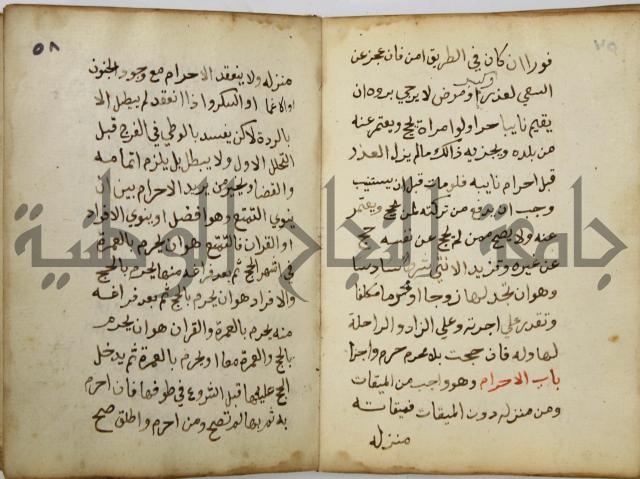 فورا ان كان في الطريق امن فان عجز عن
السعي لعذر كبر او مرض لا يرجي برؤه ان
يقيم نايبا حرا ولو امراة يحج ويعتمر عنه
من بلده ويجزيه ذالك مالم يزل العذر
قبل احرام نايبه فلو مات قبل ان يستنيب
وجب ان يدفع من تركته لمن يحج ويعتمر
عنه ولا يصح ممن لم يحج عن نفسه حج
عن غيره وتزيد الانثي شرطا سادسا
وهو ان تجد لها زوجا او محرما مكلفا
وتقدر علي اجرته وعلي الزاد والراحلة
لها وله فان حجت بلا محرم حرم واجزا
باب الاحرام وهو واجب من الميقات
ومن منزله دون الميقات فميقاته
منزله
٥٨
منزله ولا ينعقد الاحرام مع وجود الجنون
او الاغما او السكر واذا انعقد لم يبطل الا
بالردة لاكن يفسد بالوطي في الفرج قبل
التحلل الاول ولا يبطل بل يلزم اتمامه
والقضا ويخير من يريد الاحرام بين ان
ينوي التمتع وهو افضل او ينوي الافراد
او القران فالتمتع هو ان يحرم بالعمرة
في اشهر الحج ثم بعد فراغه منها يحرم بالحج
والافراد هو ان يحرم بالحج ثم بعد فراغه
منه يحرم بالعمرة والقران هو ان يحرم
بالحج والعمرة معا او يحرم بالعمرة ثم يدخل
الحج عليها قبل الشروع في طوفها فان احرم
به ثم بها لم تصح ومن احرم واطلق صح
جامعة النجاح الوطنية